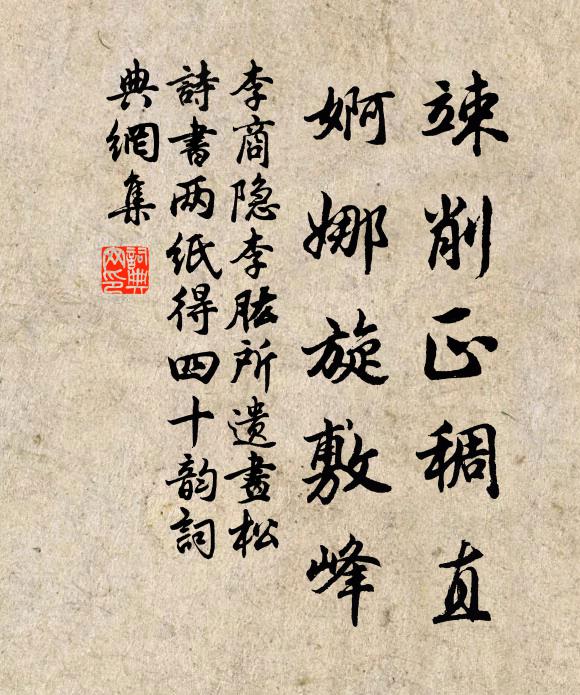 竦削正稠直
婀娜旋敷峰
李商隐李肱所遗畫松
詩書两纸得四十韵詞
典網集
詞典
网印